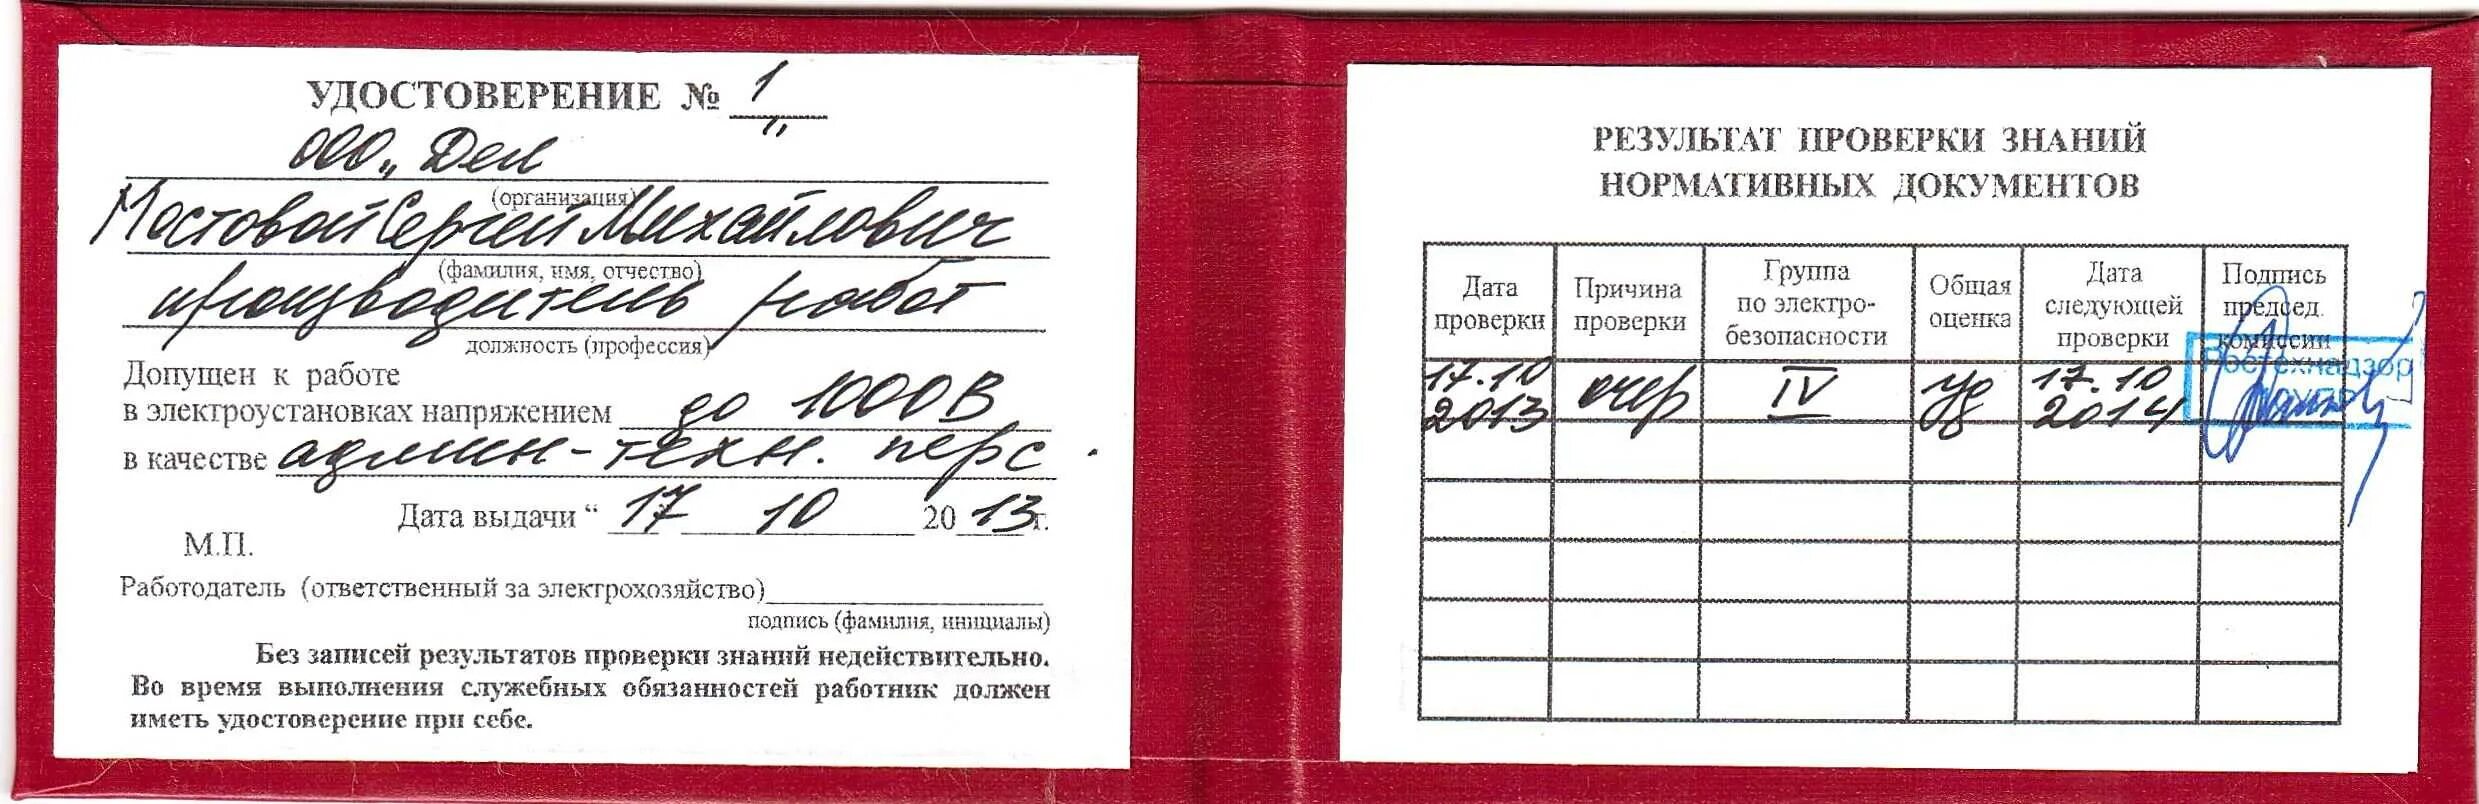 УДОСТОВЕРЕНИЕ № 1
ООО „Дел"
(организация)
Мостовой Сергей Михайлович
(фамилия, имя, отчество)
производитель работ
должность (профессия)
Допущен к работе
в электроустановках напряжением до 1000В
в качестве админ-техн. перс.
Дата выдачи “ 17 10 2013г.
М.П.
Работодатель (ответственный за электрохозяйство)
подпись (фамилия, инициалы)
Без записей результатов проверки знаний недействительно.
Во время выполнения служебных обязанностей работник должен
иметь удостоверение при себе.
РЕЗУЛЬТАТ ПРОВЕРКИ ЗНАНИЙ
НОРМАТИВНЫХ ДОКУМЕНТОВ
Дата проверки
Причина проверки
Группа по электро-безопасности
Общая оценка
Дата следующей проверки
Подпись председ. комиссии
17.10 2013
очер
IV
уд
17.10 2014
Ростехнадзор